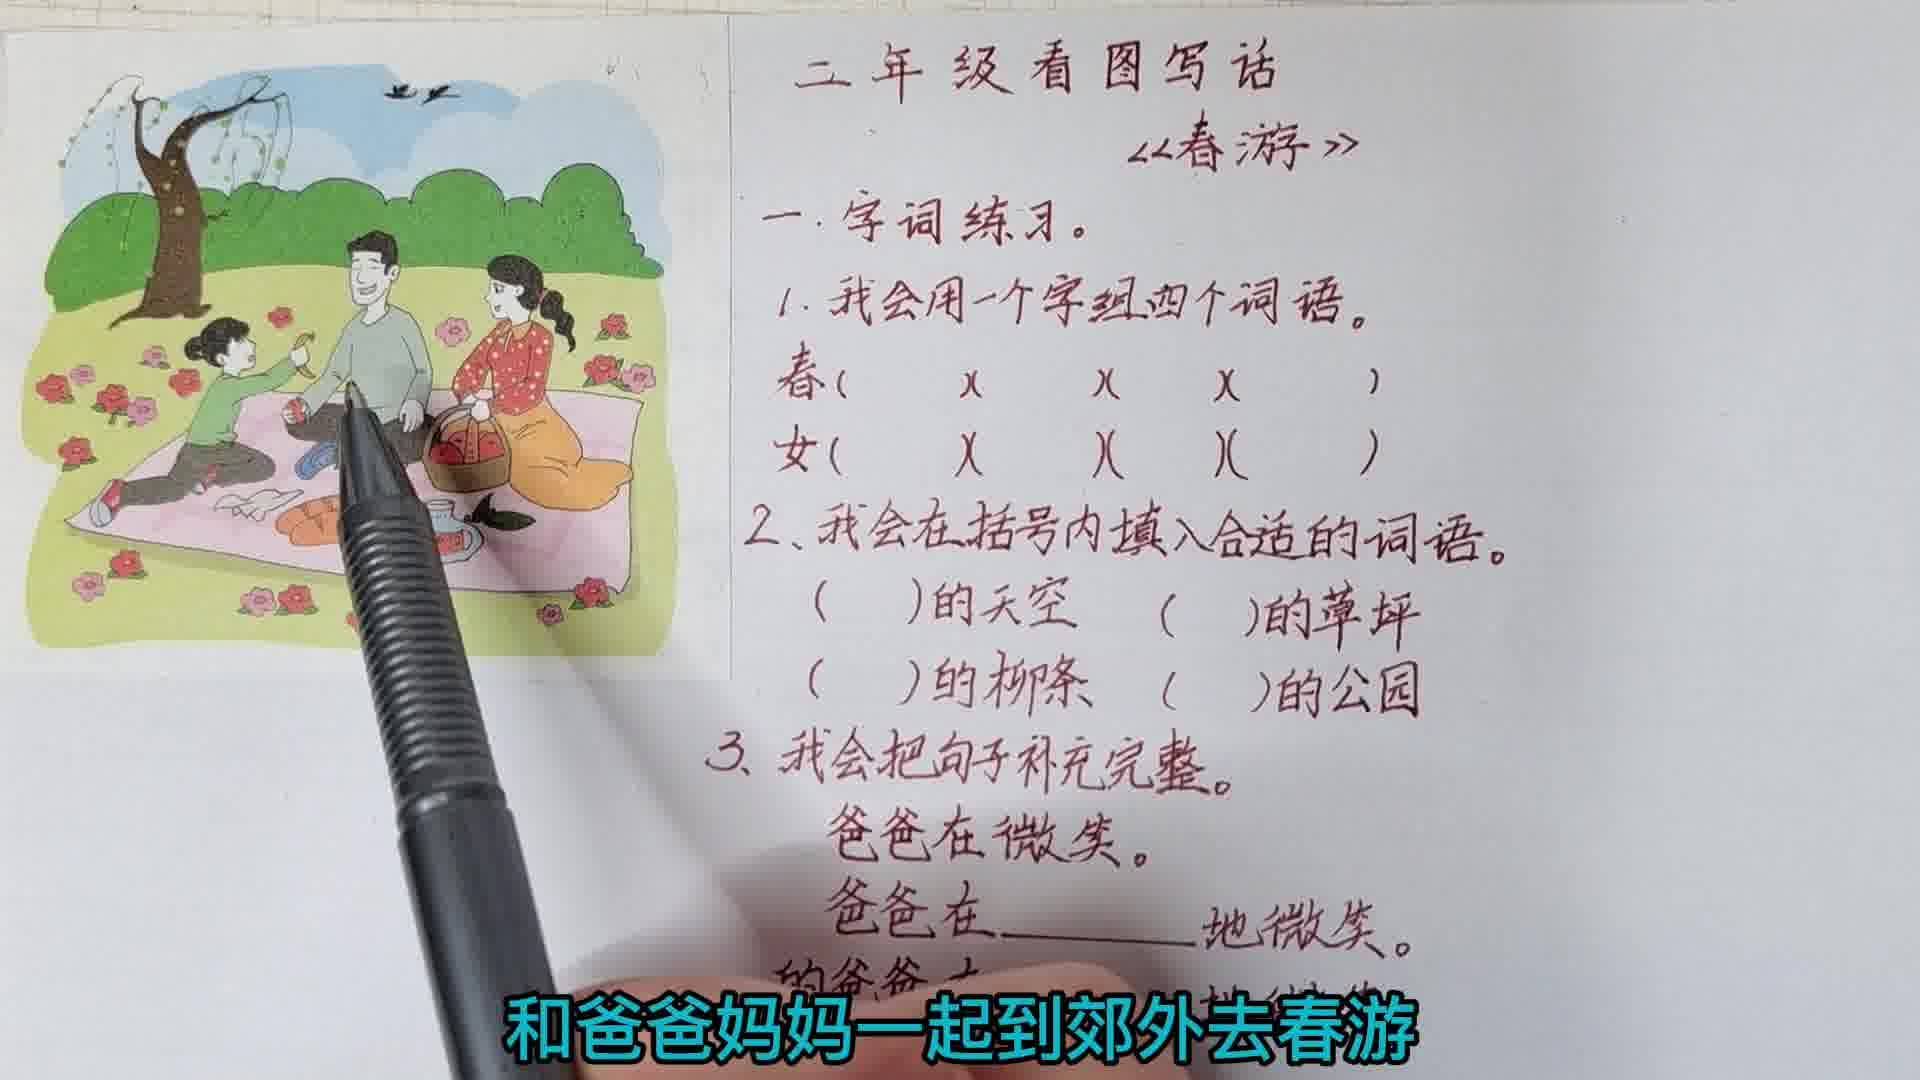 二年级看图写话
《春游》
一.字词练习。
1.我会用一个字组四个词语。
春( )( )( )( )
女( )( )( )( )
2、我会在括号内填入合适的词语。
( )的天空 ( )的草坪
( )的柳条 ( )的公园
3、我会把句子补充完整。
爸爸在微笑。
爸爸在______地微笑。
的爸爸
和爸爸妈妈一起到郊外去春游